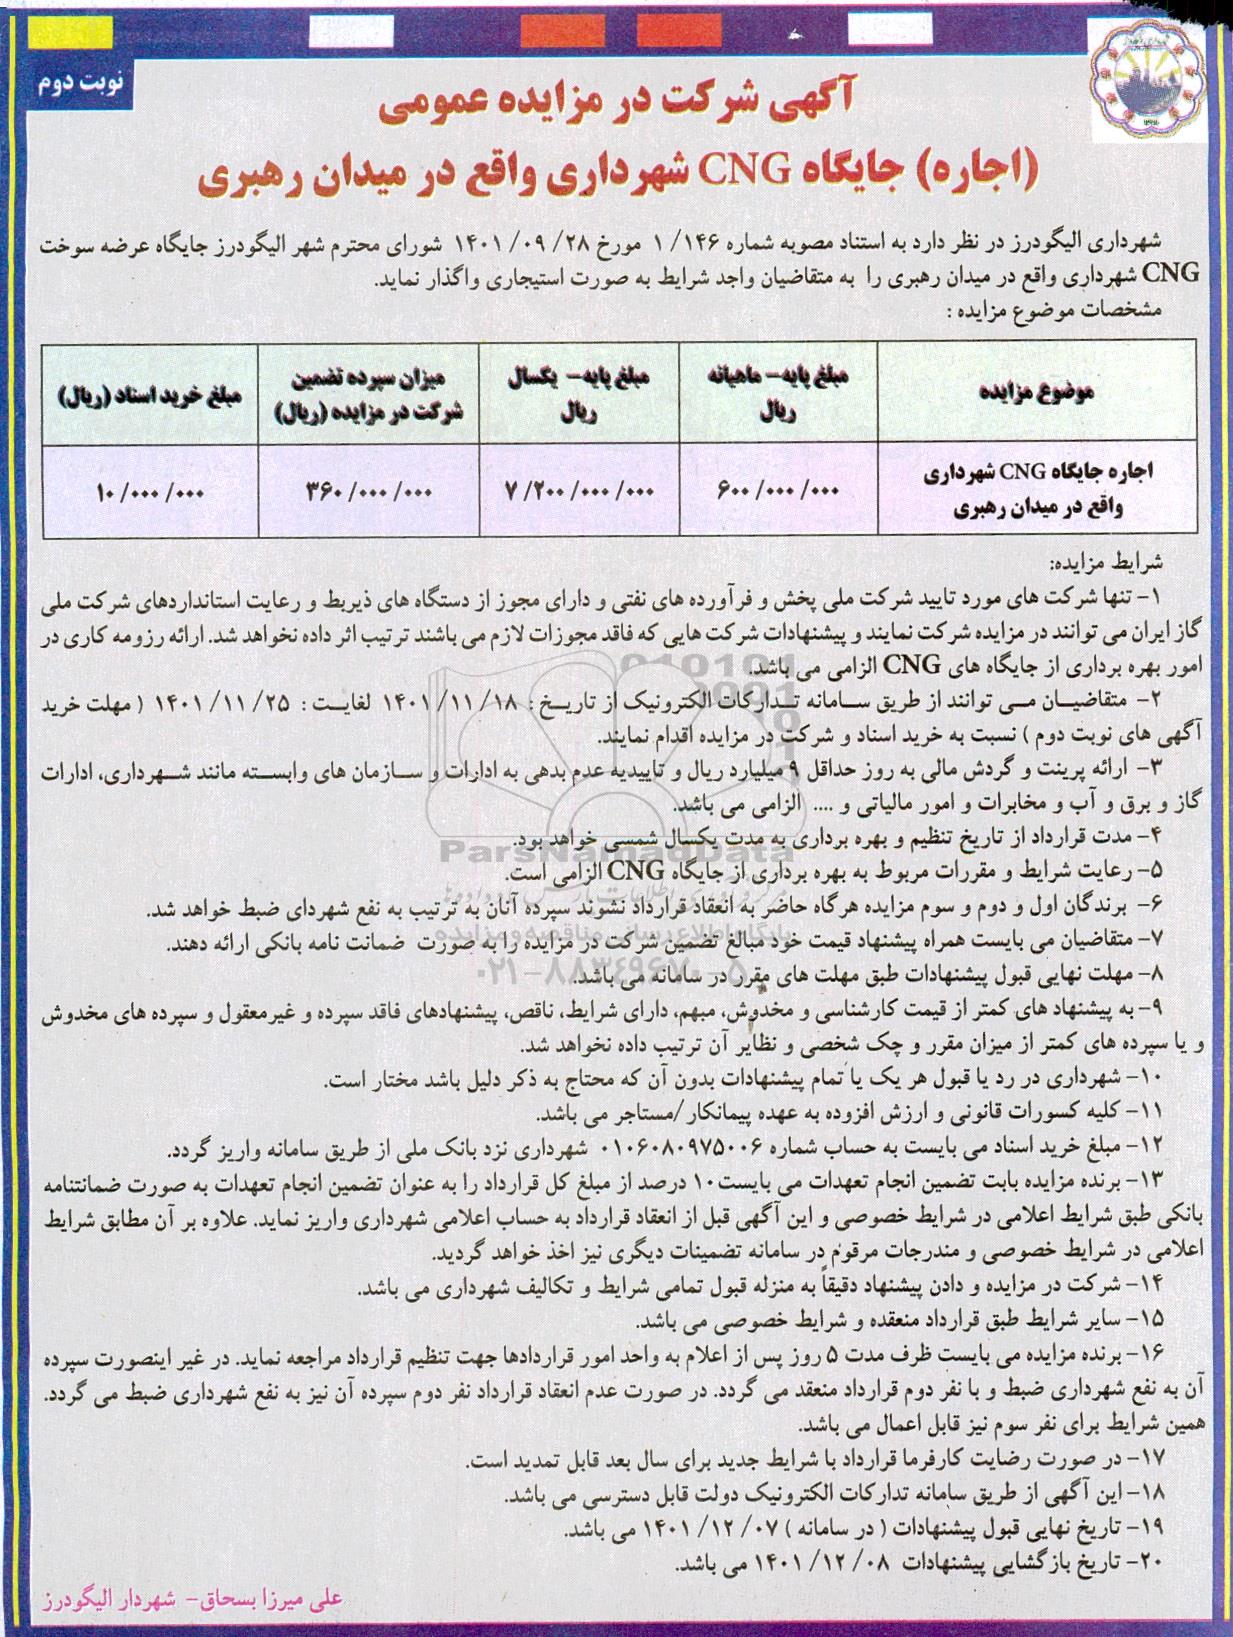 نوبت دوم
آگهی شرکت در مزایده عمومی
(اجاره) جایگاه CNG شهرداری واقع در میدان رهبری
شهرداری الیگودرز در نظر دارد به استناد مصوبه شماره ۱/۱۴۶ مورخ ۱۴۰۱/۰۹/۲۸ شورای محترم شهر الیگودرز جایگاه عرضه سوخت
CNG شهرداری واقع در میدان رهبری را به متقاضیان واجد شرایط به صورت استیجاری واگذار نماید.
مشخصات موضوع مزایده :
موضوع مزایده
مبلغ پایه- ماهیانه
ریال
مبلغ پایه- یکسال
ریال
میزان سپرده تضمین
شرکت در مزایده (ریال)
مبلغ خرید اسناد (ریال)
اجاره جایگاه CNG شهرداری
واقع در میدان رهبری
۶۰۰/۰۰۰/۰۰۰
۷/۲۰۰/۰۰۰/۰۰۰
۳۶۰/۰۰۰/۰۰۰
۱۰/۰۰۰/۰۰۰
شرایط مزایده:
۱- تنها شرکت های مورد تایید شرکت ملی پخش و فرآورده های نفتی و دارای مجوز از دستگاه های ذیربط و رعایت استانداردهای شرکت ملی
گاز ایران می توانند در مزایده شرکت نمایند و پیشنهادات شرکت هایی که فاقد مجوزات لازم می باشند ترتیب اثر داده نخواهد شد. ارائه رزومه کاری در
امور بهره برداری از جایگاه های CNG الزامی می باشد.
۲- متقاضیان می توانند از طریق سامانه تدارکات الکترونیک از تاریخ : ۱۴۰۱/۱۱/۱۸ لغایت : ۱۴۰۱/۱۱/۲۵ ( مهلت خرید
آگهی های نوبت دوم ) نسبت به خرید اسناد و شرکت در مزایده اقدام نمایند.
۳- ارائه پرینت و گردش مالی به روز حداقل ۹ میلیارد ریال و تاییدیه عدم بدهی به ادارات و سازمان های وابسته مانند شهرداری، ادارات
گاز و برق و آب و مخابرات و امور مالیاتی و .... الزامی می باشد.
۴- مدت قرارداد از تاریخ تنظیم و بهره برداری به مدت یکسال شمسی خواهد بود.
ParsNamadData
۵- رعایت شرایط و مقررات مربوط به بهره برداری از جایگاه CNG الزامی است.
۶- برندگان اول و دوم و سوم مزایده هرگاه حاضر به انعقاد قرارداد نشوند سپرده آنان به ترتیب به نفع شهردای ضبط خواهد شد.
پایگاه اطلاع رسانی مناقصه و مزایده
۷- متقاضیان می بایست همراه پیشنهاد قیمت خود مبالغ تضمین شرکت در مزایده را به صورت ضمانت نامه بانکی ارائه دهند.
۰۲۱-۸۸۳۴۹۶۷۰-۵
۸- مهلت نهایی قبول پیشنهادات طبق مهلت های مقرر در سامانه می باشد.
۹- به پیشنهاد های کمتر از قیمت کارشناسی و مخدوش، مبهم، دارای شرایط، ناقص، پیشنهادهای فاقد سپرده و غیرمعقول و سپرده های مخدوش
و یا سپرده های کمتر از میزان مقرر و چک شخصی و نظایر آن ترتیب داده نخواهد شد.
۱۰- شهرداری در رد یا قبول هر یک یا تمام پیشنهادات بدون آن که محتاج به ذکر دلیل باشد مختار است.
۱۱- کلیه کسورات قانونی و ارزش افزوده به عهده پیمانکار/مستاجر می باشد.
۱۲- مبلغ خرید اسناد می بایست به حساب شماره ۰۱۰۶۰۸۰۹۷۵۰۰۶ شهرداری نزد بانک ملی از طریق سامانه واریز گردد.
۱۳- برنده مزایده بابت تضمین انجام تعهدات می بایست۱۰ درصد از مبلغ کل قرارداد را به عنوان تضمین انجام تعهدات به صورت ضمانتنامه
بانکی طبق شرایط اعلامی در شرایط خصوصی و این آگهی قبل از انعقاد قرارداد به حساب اعلامی شهرداری واریز نماید. علاوه بر آن مطابق شرایط
اعلامی در شرایط خصوصی و مندرجات مرقوم در سامانه تضمینات دیگری نیز اخذ خواهد گردید.
۱۴- شرکت در مزایده و دادن پیشنهاد دقیقاً به منزله قبول تمامی شرایط و تکالیف شهرداری می باشد.
۱۵- سایر شرایط طبق قرارداد منعقده و شرایط خصوصی می باشد.
۱۶- برنده مزایده می بایست ظرف مدت ۵ روز پس از اعلام به واحد امور قراردادها جهت تنظیم قرارداد مراجعه نماید. در غیر اینصورت سپرده
آن به نفع شهرداری ضبط و با نفر دوم قرارداد منعقد می گردد. در صورت عدم انعقاد قرارداد نفر دوم سپرده آن نیز به نفع شهرداری ضبط می گردد.
همین شرایط برای نفر سوم نیز قابل اعمال می باشد.
۱۷- در صورت رضایت کارفرما قرارداد با شرایط جدید برای سال بعد قابل تمدید است.
۱۸- این آگهی از طریق سامانه تدارکات الکترونیک دولت قابل دسترسی می باشد.
۱۹- تاریخ نهایی قبول پیشنهادات ( در سامانه ) ۱۴۰۱/۱۲/۰۷ می باشد.
۲۰- تاریخ بازگشایی پیشنهادات ۱۴۰۱/۱۲/۰۸ می باشد.
علی میرزا بسحاق- شهردار الیگودرز